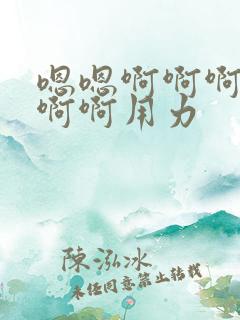 嗯嗯啊啊啊
啊啊用力
陳泓冰
未经同意禁止转载